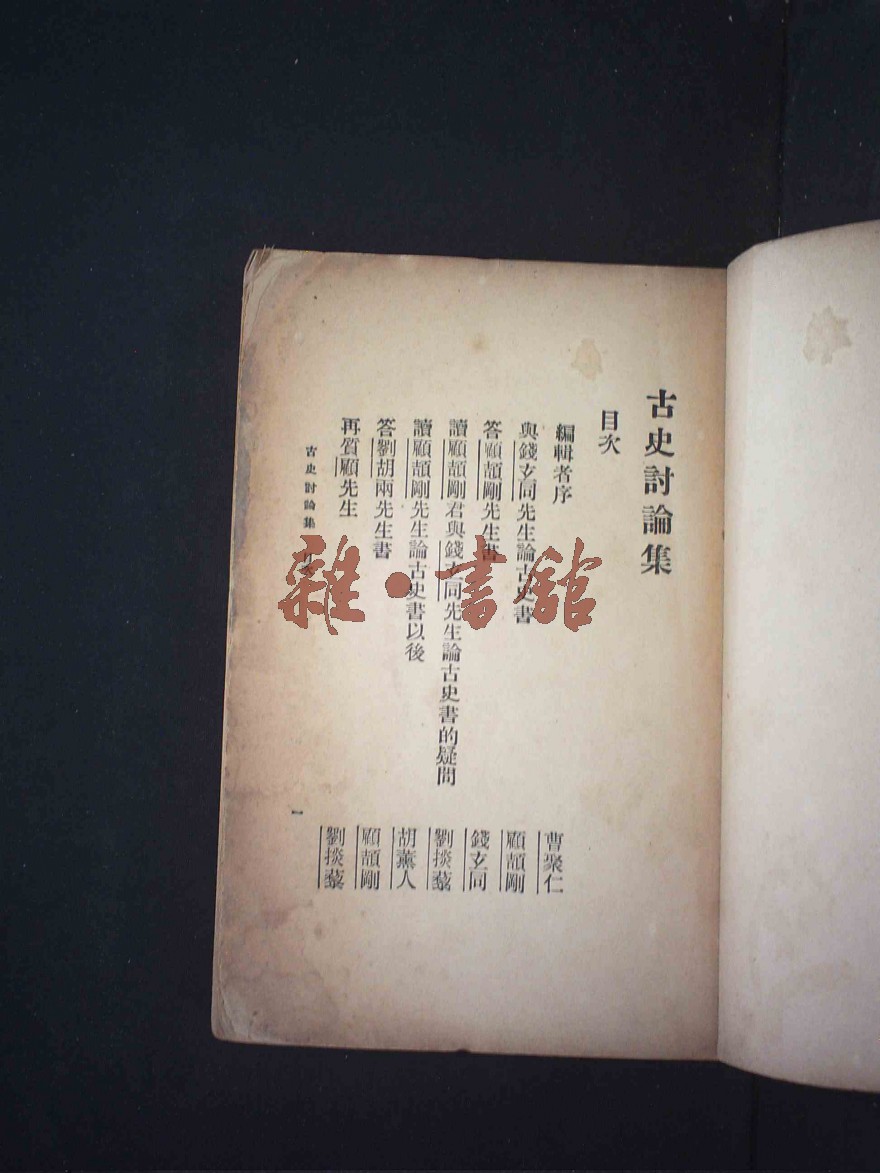 古史討論集
目次
編輯者序 曹聚仁
與錢玄同先生論古史書 顧頡剛
答顧頡剛先生書 錢玄同
讀顧頡剛君與錢玄同先生論古史書的疑問 劉掞藜
讀顧頡剛先生論古史書以後 胡堇人
答劉胡兩先生書 顧頡剛
再質顧先生 劉掞藜
古史討論集 目次
一
雜·書館